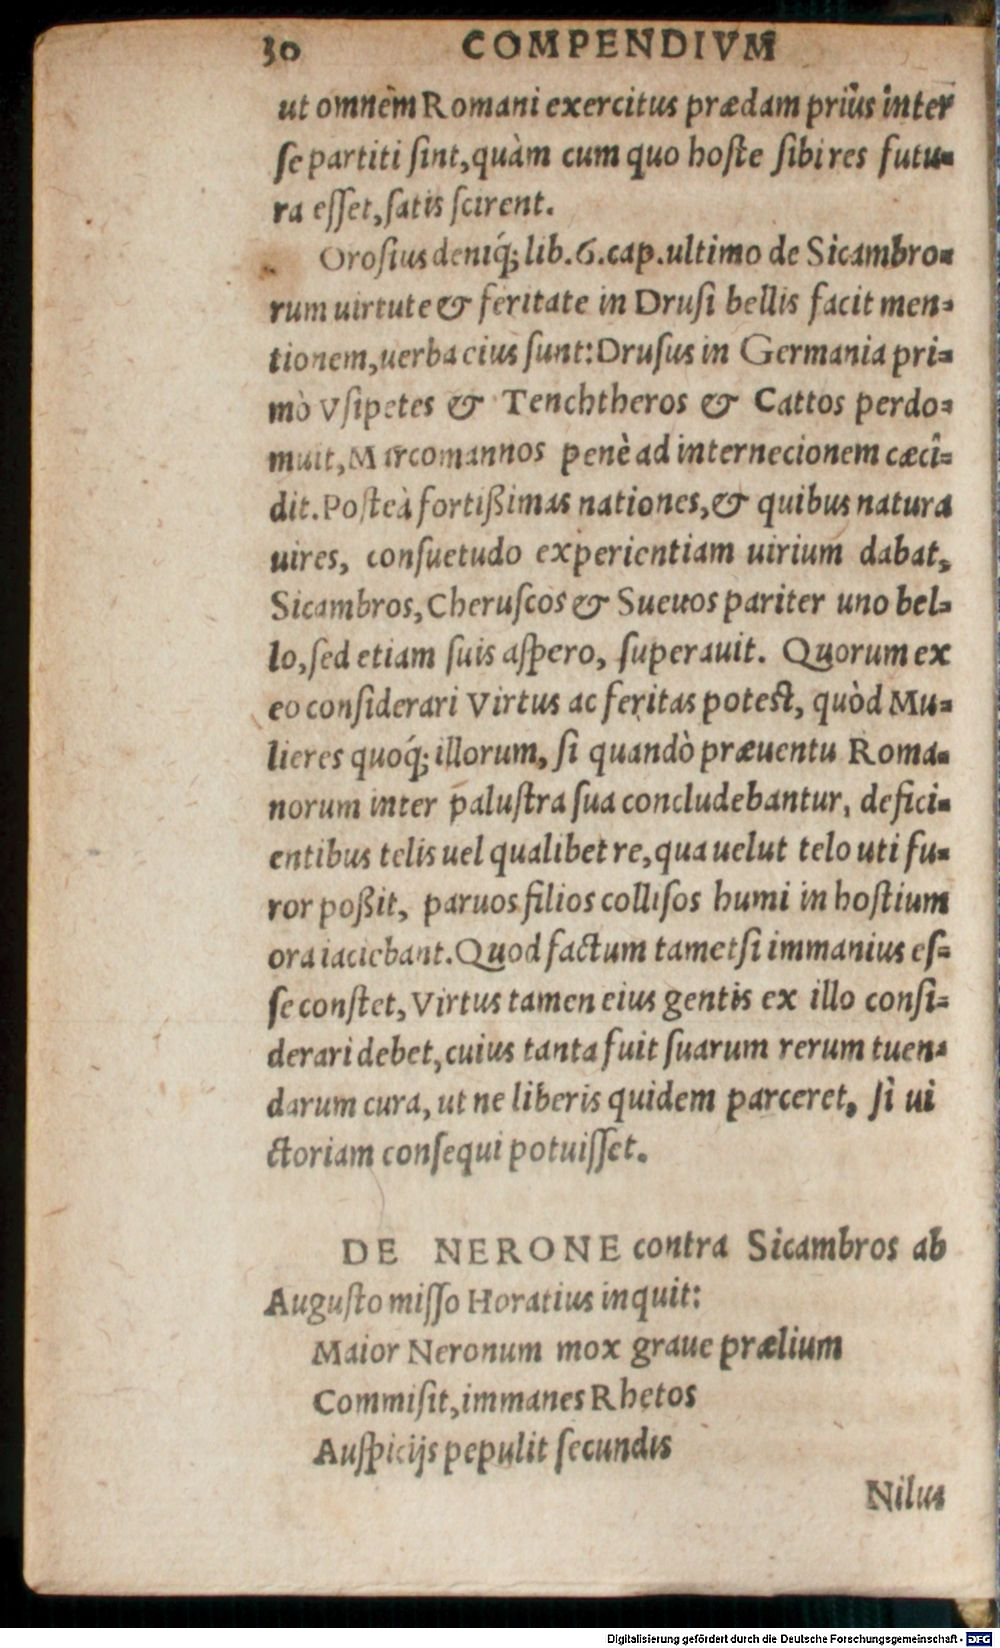 30 COMPENDIVM
ut omnem Romani exercitus prædam priùs inter
se partiti sint, quàm cum quo hoste sibi res futu-
ra esset, satis scirent.
Orosius deniq́; lib. 6. cap. ultimo de Sicambro-
rum uirtute & feritate in Drusi bellis facit men-
tionem, uerba eius sunt: Drusus in Germania pri-
mò Vsipetes & Tenchtheros & Cattos perdo-
muit, Marcomannos penè ad internecionem cæci-
dit. Posteà fortißimas nationes, & quibus natura
uires, consuetudo experientiam uirium dabat,
Sicambros, Cheruscos & Sueuos pariter uno bel-
lo, sed etiam suis aspero, superauit. Quorum ex
eo considerari Virtus ac feritas potest, quòd Mu-
lieres quoq́; illorum, si quandò præuentu Roma-
norum inter palustra sua concludebantur, defici-
entibus telis uel qualibet re, qua uelut telo uti fu-
ror poßit, paruos filios collisos humi in hostium
ora iaciebant. Quod factum tametsi immanius es-
se constet, Virtus tamen eius gentis ex illo consi-
derari debet, cuius tanta fuit suarum rerum tuen-
darum cura, ut ne liberis quidem parceret, si ui
ctoriam consequi potuisset.
DE NERONE contra Sicambros ab
Augusto misso Horatius inquit:
Maior Neronum mox graue prælium
Commisit, immanes Rhetos
Auspicijs pepulit secundis
Nilus
Digitalisierung gefördert durch die Deutsche Forschungsgemeinschaft - DFG